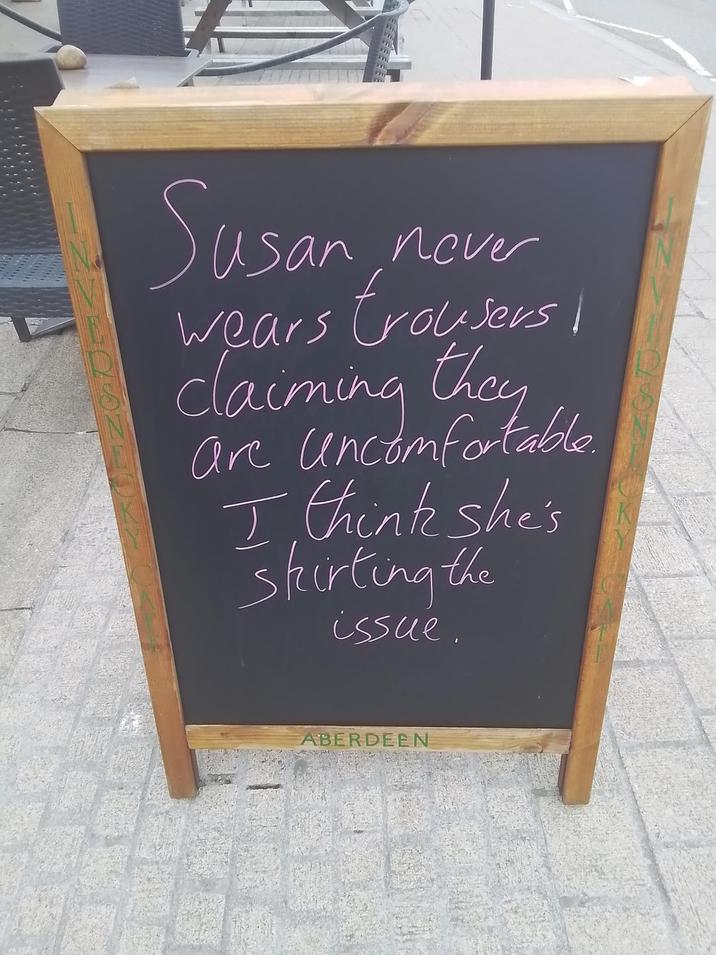 Susan never
wears trousers
claiming they
are uncomfortable.
I think she's
skirting the
issue.
INVERSNECKY CAFE
INVERSNECKY CAFE
ABERDEEN